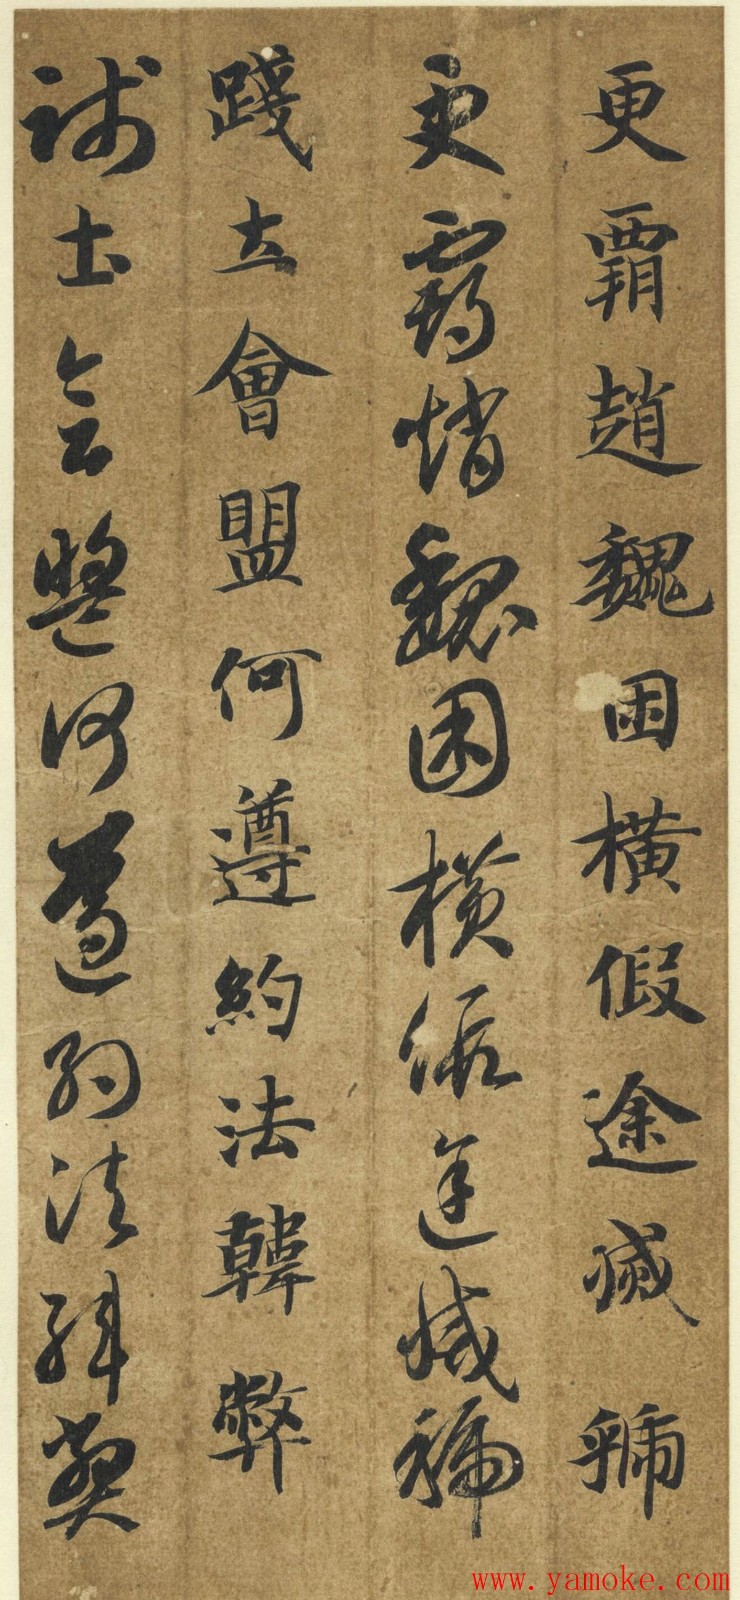 更覇趙魏困橫假途滅虢
更覇趙魏困橫假途滅虢
踐土會盟何遵約法韓弊
踐土會盟何遵約法韓弊
www.yamoke.com